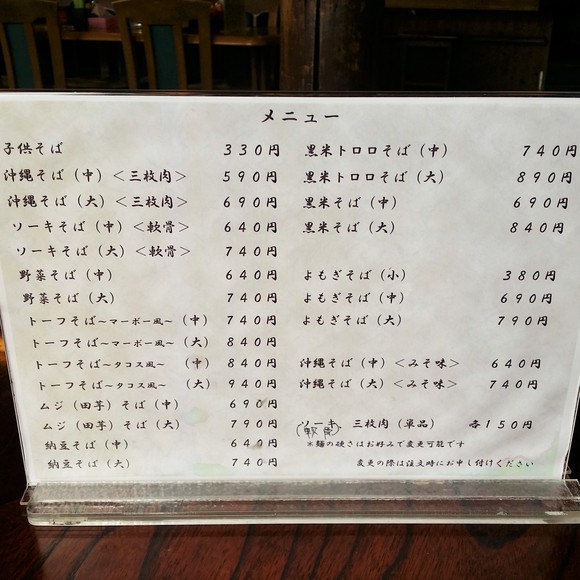 メニュー
子供そば 330円
沖縄そば（中）＜三枚肉＞ 590円
沖縄そば（大）＜三枚肉＞ 690円
ソーキそば（中）＜軟骨＞ 640円
ソーキそば（大）＜軟骨＞ 740円
野菜そば（中） 640円
野菜そば（大） 740円
トーフそば～マーボー風～（中） 740円
トーフそば～マーボー風～（大） 840円
トーフそば～タコス風～（中） 840円
トーフそば～タコス風～（大） 940円
ムジ（田芋）そば（中） 690円
ムジ（田芋）そば（大） 790円
納豆そば（中） 640円
納豆そば（大） 740円
黒米トロロそば（中） 740円
黒米トロロそば（大） 890円
黒米そば（中） 690円
黒米そば（大） 840円
よもぎそば（小） 380円
よもぎそば（中） 690円
よもぎそば（大） 790円
沖縄そば（中）＜みそ味＞ 640円
沖縄そば（大）＜みそ味＞ 740円
ソーキ 三枚肉（単品） 各150円
（軟骨）
＊麺の硬さはお好みで変更可能です
変更の際は注文時にお申し付けください